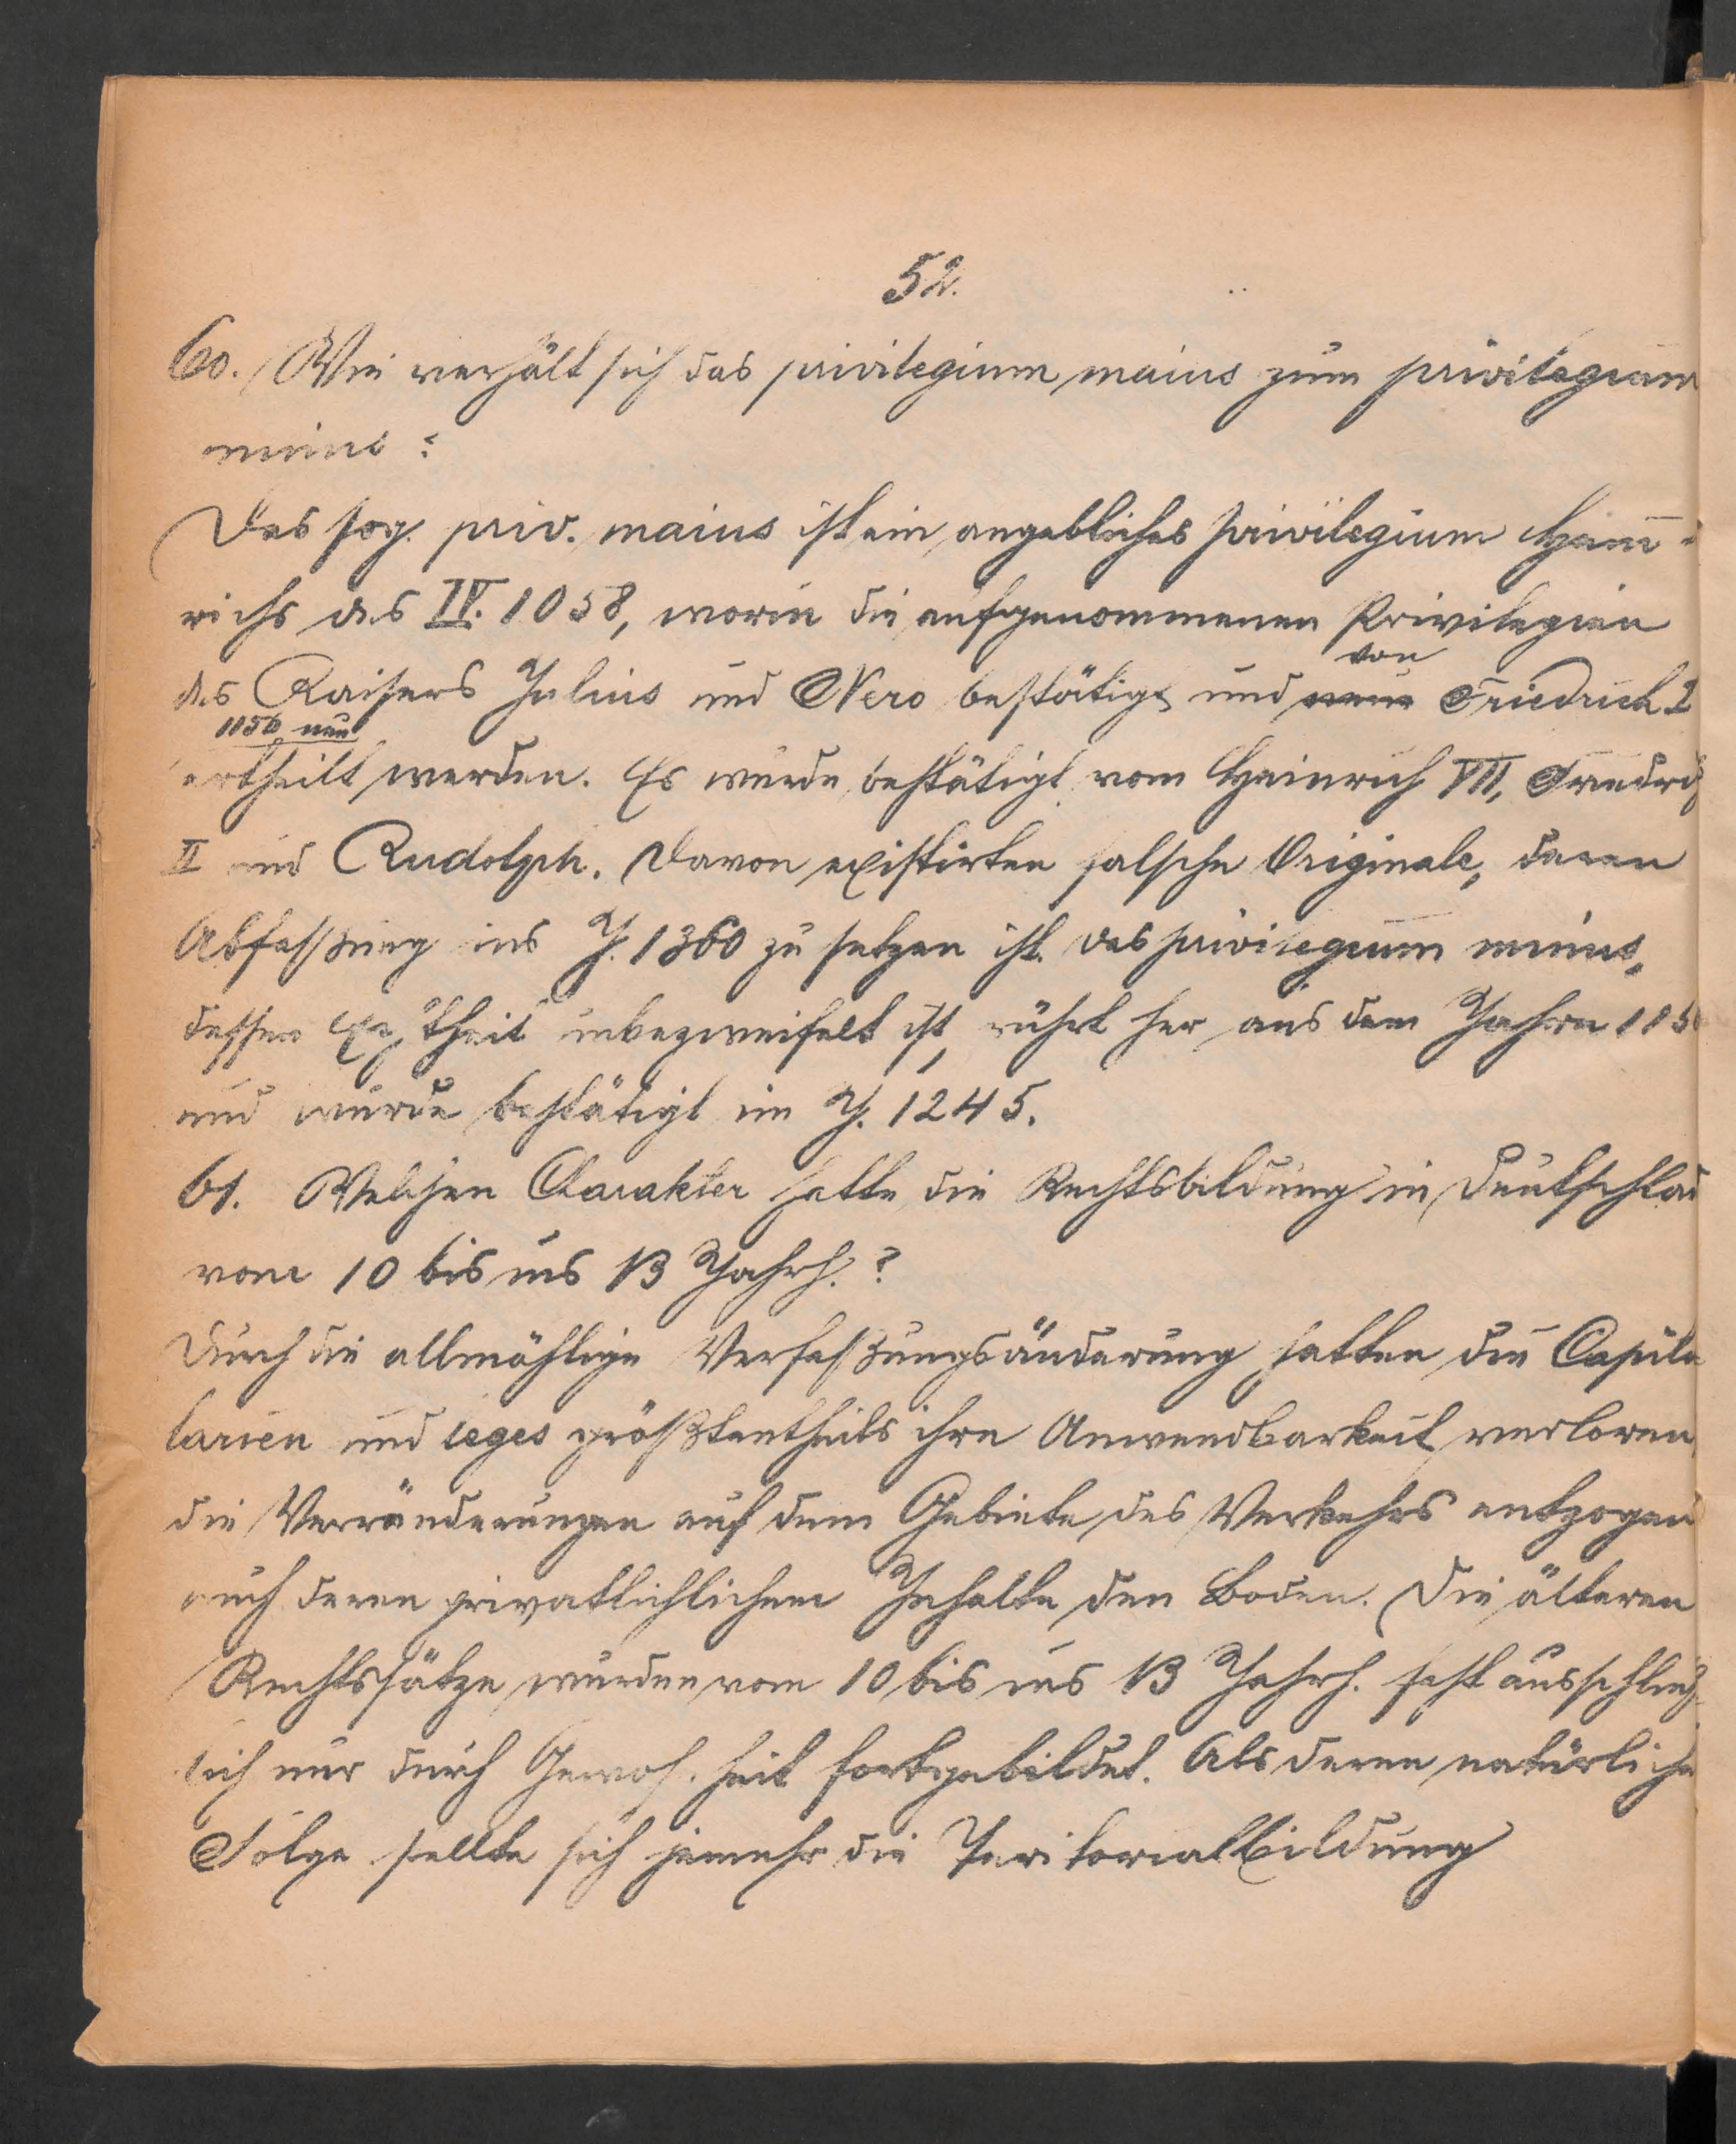 52.
60. Wie verhält sich das privilegium maius zum privilegium
minus?
Das sog. priv. maius ist ein angebliches Privilegium Hein-
richs des IV. 1058, worin die aufgenommenen Privilegien
von
des Kaisers Julius und Nero bestätigt und neue Friedrich I
1156 neu
ertheilt werden. Es wurde bestätigt vom Heinrich VII, Friedrich
II und Rudolph. Davon existirten falsche Originale, deren
Abfaßung ins J. 1360 zu setzen ist. das privilegium minus,
dessen Echtheit unbezweifelt ist, rührt her aus dem Jahre 1156
und wurde bestätigt im J. 1245.
61. Welchen Charakter hatte die Rechtsbildung in Deutschland
vom 10 bis ins 13 Jahrh.?
Durch die allmählige Verfaßungsänderung hatten die Capitu
larien und leges größtentheils ihre Anwendbarkeit verloren,
die Verränderungen auf dem Gebiete des Verkehrs entzogen
auch deren privatlichlichem Inhalte den Boden. Die älteren
Rechtssätze wurden vom 10 bis ins 13 Jahrh. fast ausschließ
lich nur durch Gewohnheit fortgebildet. Als deren natürliche
Folge stellte sich jemehr die Teritorialbildung